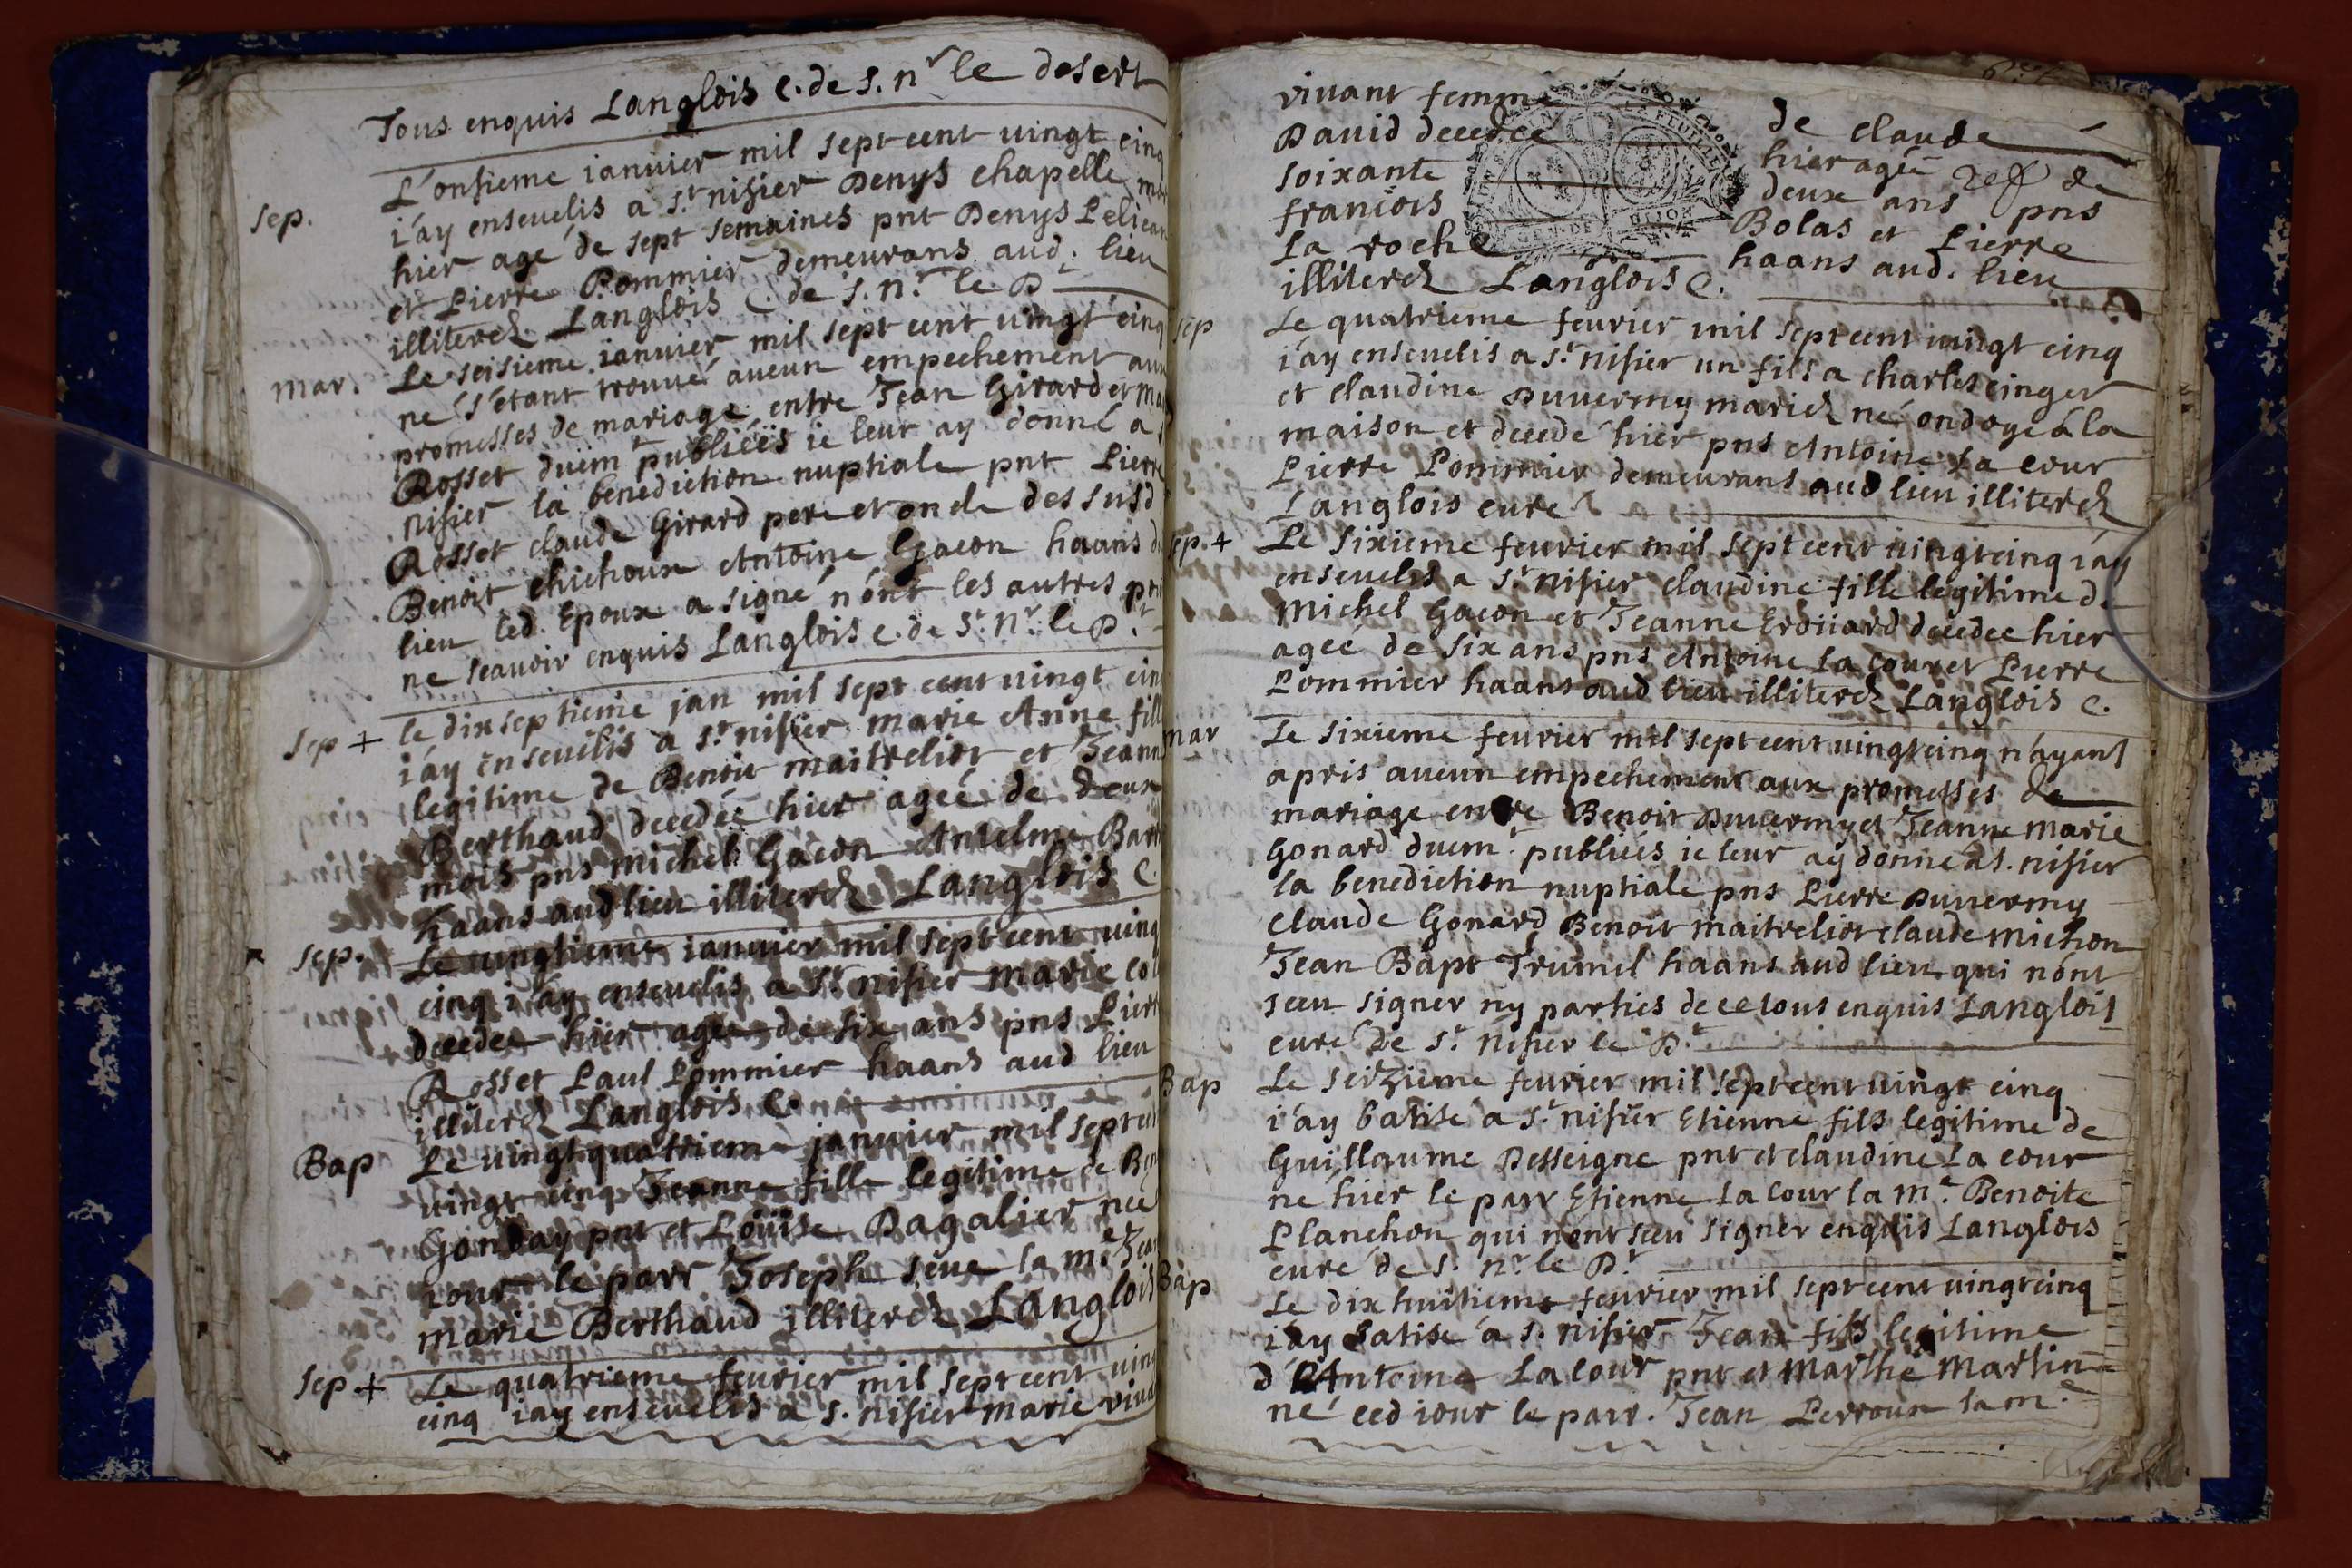 Tous enquis Langlois C. de S. nr le desert
L'onsieme ianuier mil sept cent uingt cinq
sep.
i'ay enseuelis a st nisier Denys chapelle
hier agé de sept semaines pnt Denys Pelican
et Pierre Pommier demeurans aud. lieu
illiterez Langlois C. de S. nr le Dt
mar.
Le seisieme ianuier mil sept cent uingt cinq
ne s'étant trouué aucun empechement aux
promesses de mariage entre Jean Girard et
Rosset düemt publiéés ie leur ay donné a
nisier la benediction nuptiale pnt Pierre
Rosset claude Girard pere et oncle dessusd
Benoit chichoux Antoine Gacon haans
lieu led. Epoux a signé n'ont les autres
ne scauoir enquis Langlois c. de St. Nr. le Dt
Sep +
le dix septieme jan mil sept cent uingt cinq
i'ay enseuelis a st. nisier marie Anne fille
legitime de Benoit maitreliot et Jeanne
Berthaud decedéé hier agéé de deux
mois pns michel Gacon Antelme
haans aud lieu illiterez Langlois C.
sep.
Le uingtieme ianuier mil sept cent uingt
cinq i'ay enseuelis a st. nisier marie
decedee hier agée de six ans pns Pierre
Rosset Paul Pommier haans aud lieu
illiterez Langlois C.
Bap
Le uingt quatrieme januier mil sept cent
uingt cinq Jeanne fille legitime de
Gonday pnt et Loüise Dagalier néé
iour le parr Joseph séue la me
marie Berthaud illiterez Langlois
sep +
Le quatrieme feurier mil sept cent uingt
cinq iay enseuelis a s. nisier marie
vivant femme de claude
Dauid decedee hier agéé
soixante deux ans pns
francois Bolas et Pierre
La roche haans aud. lieu
illiterez Langlois C.
sep
Le quatrieme feurier mil sept cent uingt cinq
i'ay enseuelis a st nisier un fils a charles cinger
et claudine Duuermy mariez né ondoyé á la
maison et decedé hier pns Antoine La cour
Pierre Pommier demeurans aud lieu illiterez
Langlois curé
sep. +
Le sixieme feurier mil sept cent uingt cinq i'ay
enseuelis a st nisier claudine fille legitime de
Michel Gacon et Jeanne Erdüard decedee hier
agéé de six ans pns Antoine La cour et Pierre
Pommier haans aud lieu illiterez Langlois C.
mar
Le sixieme feurier mil sept cent uingt cinq n'ayant
apris aucun empechement aux promesses de
mariage entre Benoit Duuermy et Jeanne marie
Gonard duemt publiéés ie leur ay donné a s. nisier
la benediction nuptiale pns Pierre Duuermy
claude Gonard Benoit maitreliot claude michon
Jean Bapt Trumel haans aud lieu qui n'ont
sceu signer ny parties de ce tous enquis Langlois
curé de St. nisier le Dt
Bap
Le seizieme feurier mil sept cent uingt cinq
i'ay batisé a st nisier Etienne fils legitime de
Guillaume Desseigne pnt et claudine La cour
né hier le parr Etienne La cour la me. Benoite
Planchon qui n'ont sceu signer enquis Langlois
curé de s. nr le Dt
Bap
Le dix huitieme feurier mil sept cent uingt cinq
i'ay batisé a s. nisier Jean fils legitime
d'Antoine La cour pnt et Marthe Martin
né ced iour le parr. Jean Perroux la me